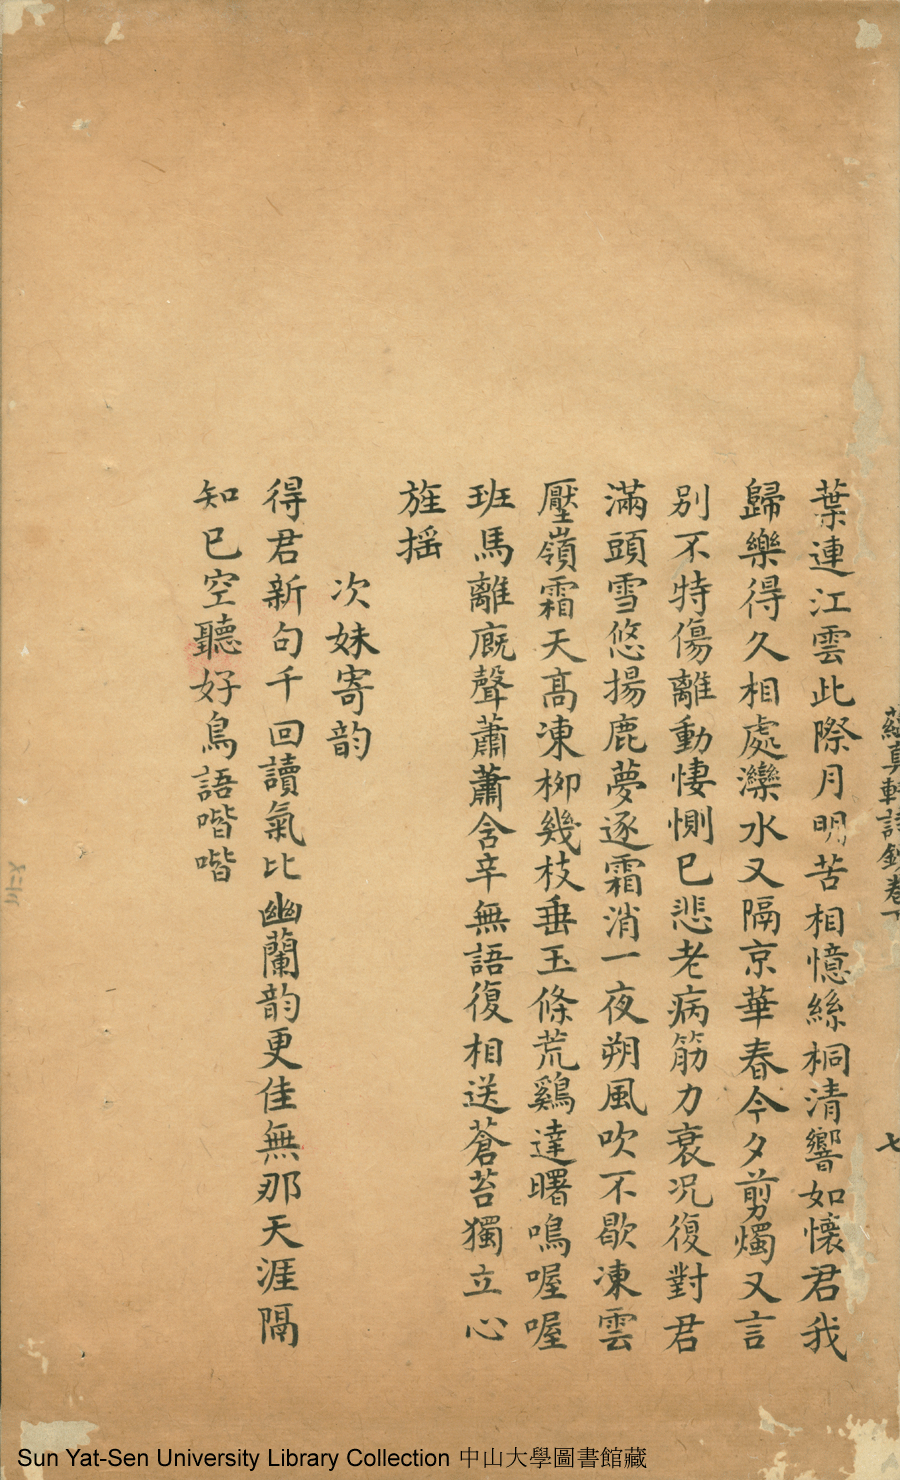 葉連江雲此際月明苦相憶絲桐清響如懷君我
歸樂得久相處灤水又隔京華春今夕剪燭又言
別不特傷離動悽惻已悲老病筋力衰况復對君
滿頭雪悠揚鹿夢逐霜消一夜朔風吹不歇凍雲
壓嶺霜天高凍柳幾枝垂玉條荒鷄達曙鳴喔喔
班馬離廐聲蕭蕭含辛無語復相送蒼苔獨立心
旌揺
次妹寄韵
得君新句千回讀氣比幽蘭韵更佳無那天涯隔
知已空聽好鳥語喈喈
真軒詩鈔卷下
七
Sun Yat-Sen University Library Collection 中山大學圖書館藏